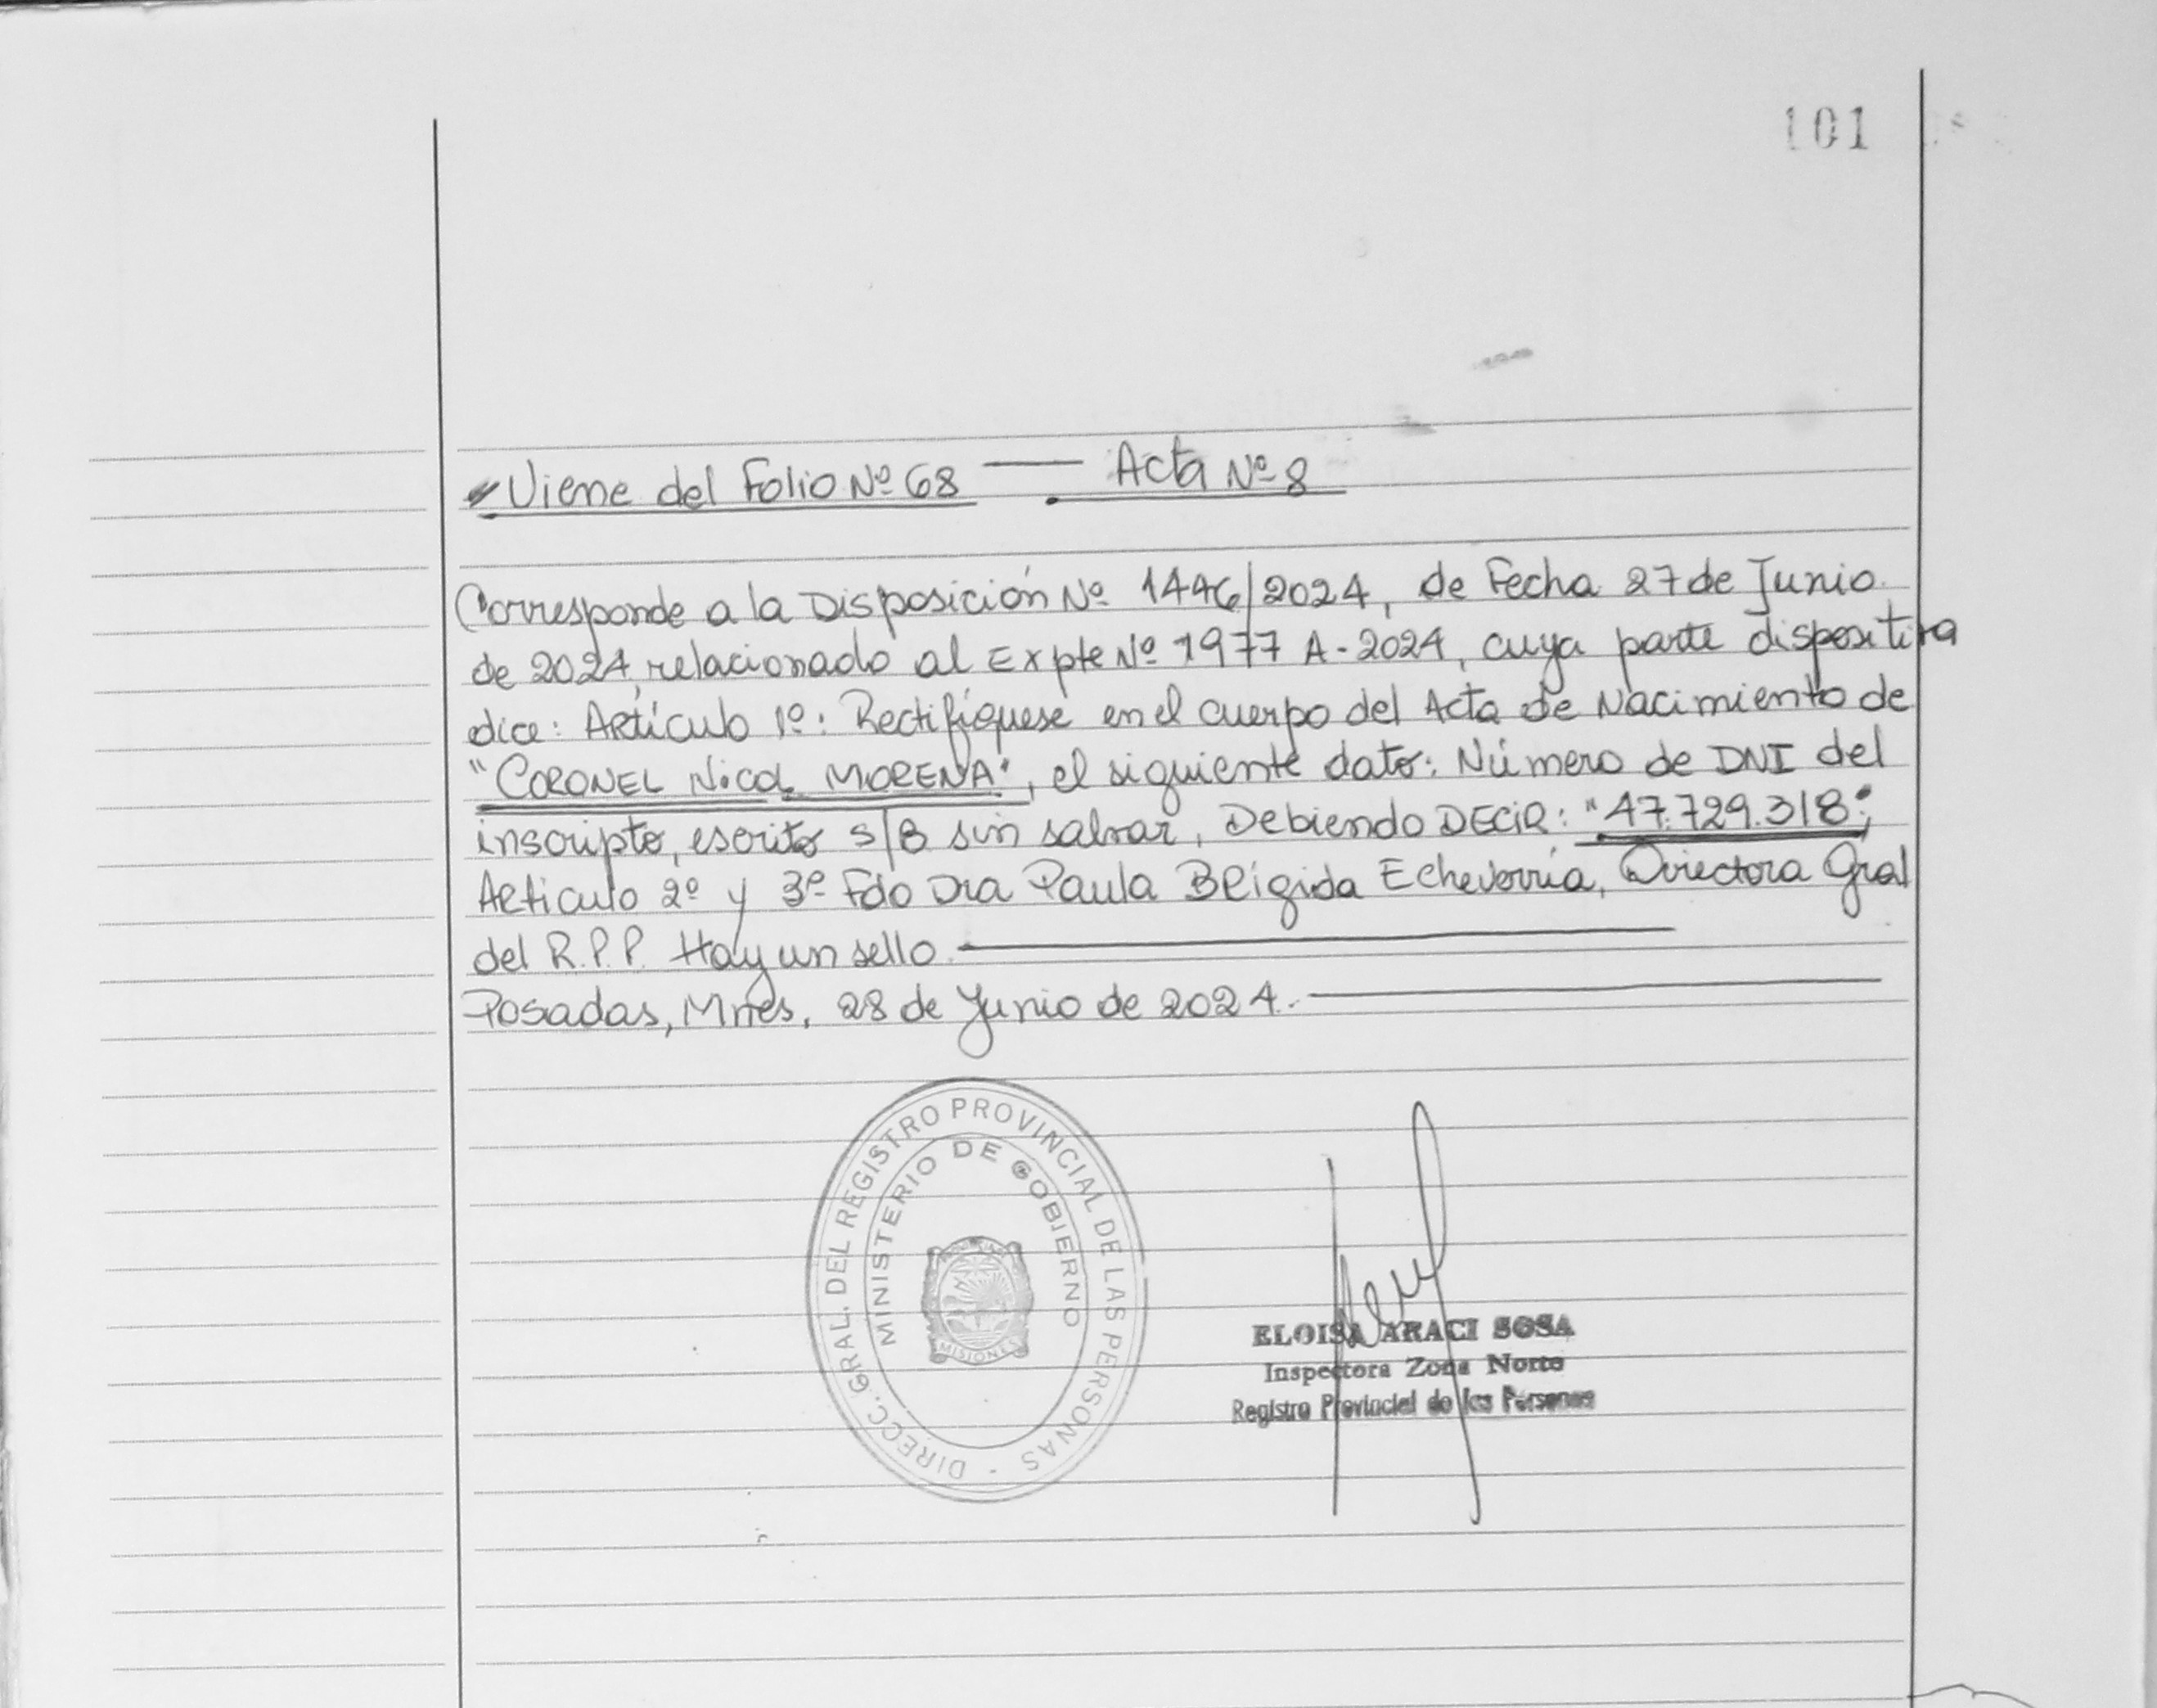 101
Viene del Folio Nº 68 — Acta Nº 8
Corresponde a la Disposición Nº 1446/2024, de Fecha 27 de Junio
de 2024, relacionado al Expte Nº 1977 A-2024, cuya parte dispositiva
dice: Artículo 1º: Rectifíquese en el cuerpo del Acta de Nacimiento de
"CORONEL Nicol MORENA", el siguiente dato: Número de DNI del
inscripto, escrito s/B sin salvar, Debiendo DECIR: "47.729.318";
Articulo 2º y 3º Fdo Dra Paula BRígida Echeverría, Directora Gral
del R.P.P. Hay un sello.
Posadas, Mnes, 28 de Junio de 2024.
DIRECC. GRAL. DEL REGISTRO PROVINCIAL DE LAS PERSONAS -
MINISTERIO DE GOBIERNO
MISIONES
ELOISA ARACI SOSA
Inspectora Zona Norte
Registro Provincial de las Personas